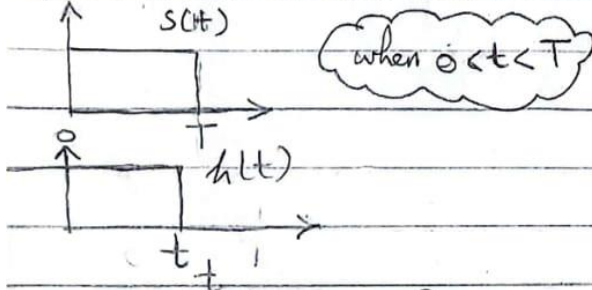 S(t)
when 0 < t < T
T
0
h(t)
t
t